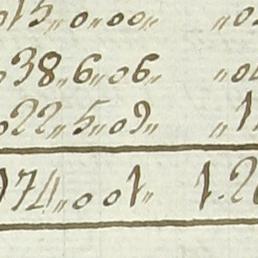 015„0„00„ „0
038„6„06„ „0
022„5„09„ „1
974„001„ 1.2